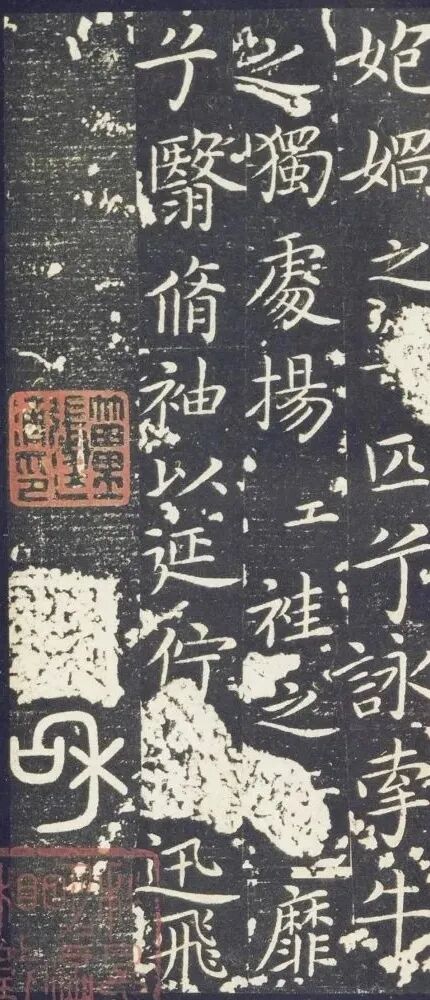 媧之匹兮詠牽牛
之獨處揚袿之靡
兮翳脩袖以延佇迅飛
和